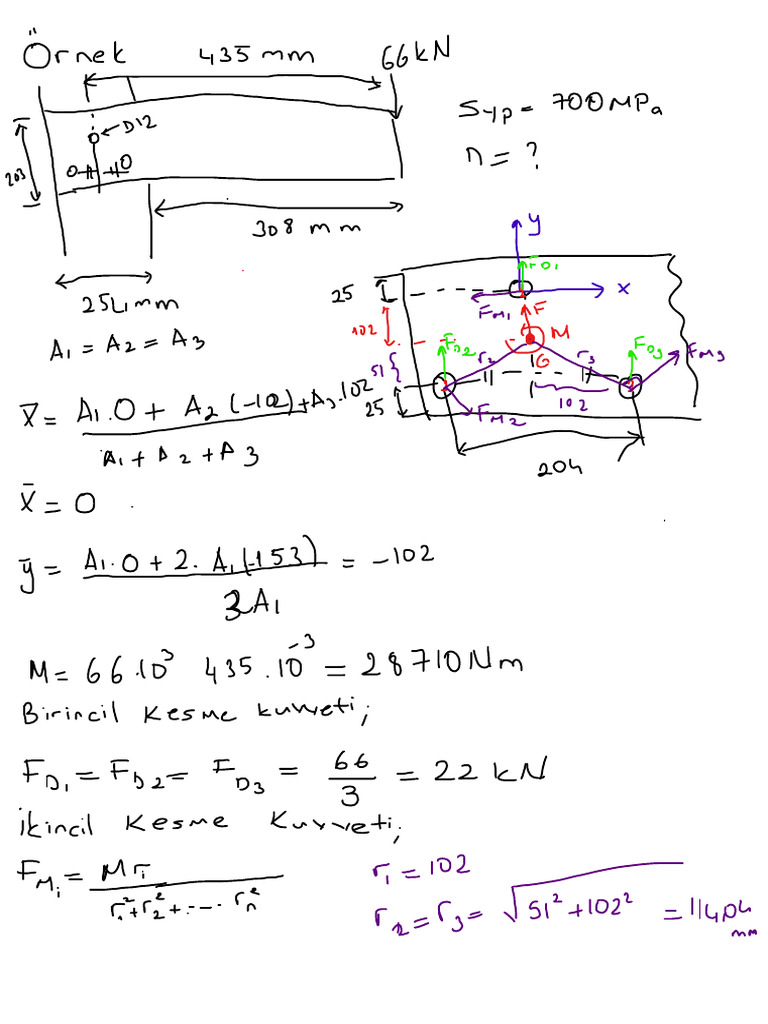 Örnek
435 mm
66kN
D12
203
308 mm
254 mm
Syp = 700MPa
n = ?
y
x
25
102
51
25
FD1
FM1
F
M
FD2
r2
G
r3
FD3
FM3
FM2
102
204
A1 = A2 = A3
x̄ = (A1.0 + A2(-102) + A3.102) / (A1 + A2 + A3)
x̄ = 0
ȳ = (A1.0 + 2. A1(-153)) / 3A1 = -102
M = 66.10³ 435.10⁻³ = 28710Nm
Birincil Kesme kuvveti;
FD1 = FD2 = FD3 = 66/3 = 22 kN
İkincil Kesme Kuvveti;
FMi = Mri / (r1² + r2² + ..... rn²)
r1 = 102
r2 = r3 = √(51² + 102²) = 114,04 mm